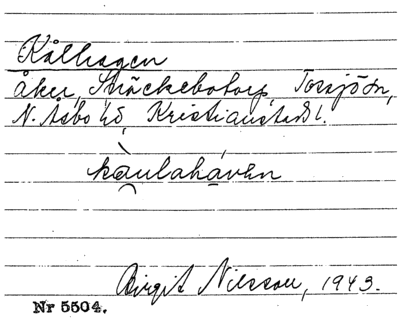 Kålhagen
åker, Snäckebotorp, Torsjö sn,
N. Åsbo hd, Kristianstads l.
kaulahaven
Birgit Nilsson, 1943.
Nr 5504.